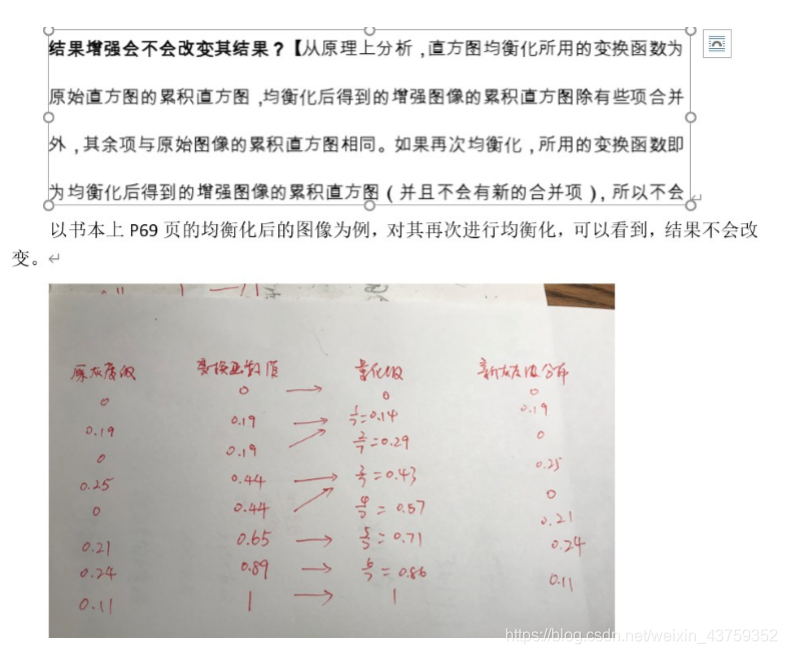 结果增强会不会改变其结果？【从原理上分析，直方图均衡化所用的变换函数为
原始直方图的累积直方图，均衡化后得到的增强图像的累积直方图除有些项合并
外，其余项与原始图像的累积直方图相同。如果再次均衡化，所用的变换函数即
为均衡化后得到的增强图像的累积直方图（并且不会有新的合并项），所以不会
以书本上 P69 页的均衡化后的图像为例，对其再次进行均衡化，可以看到，结果不会改
变。
原灰度级 变换函数值 量化级 新灰度级分布
0 0 → 0 0
0.19 0.19 → 1/7=0.14 0.19
0 0.19 2/7=0.29 0
0.25 0.44 → 3/7=0.43 0.25
0 0.44 4/7=0.57 0
0.21 0.65 → 5/7=0.71 0.21
0.24 0.89 → 6/7=0.86 0.24
0.11 1 → 1 0.11
https://blog.csdn.net/weixin_43759352